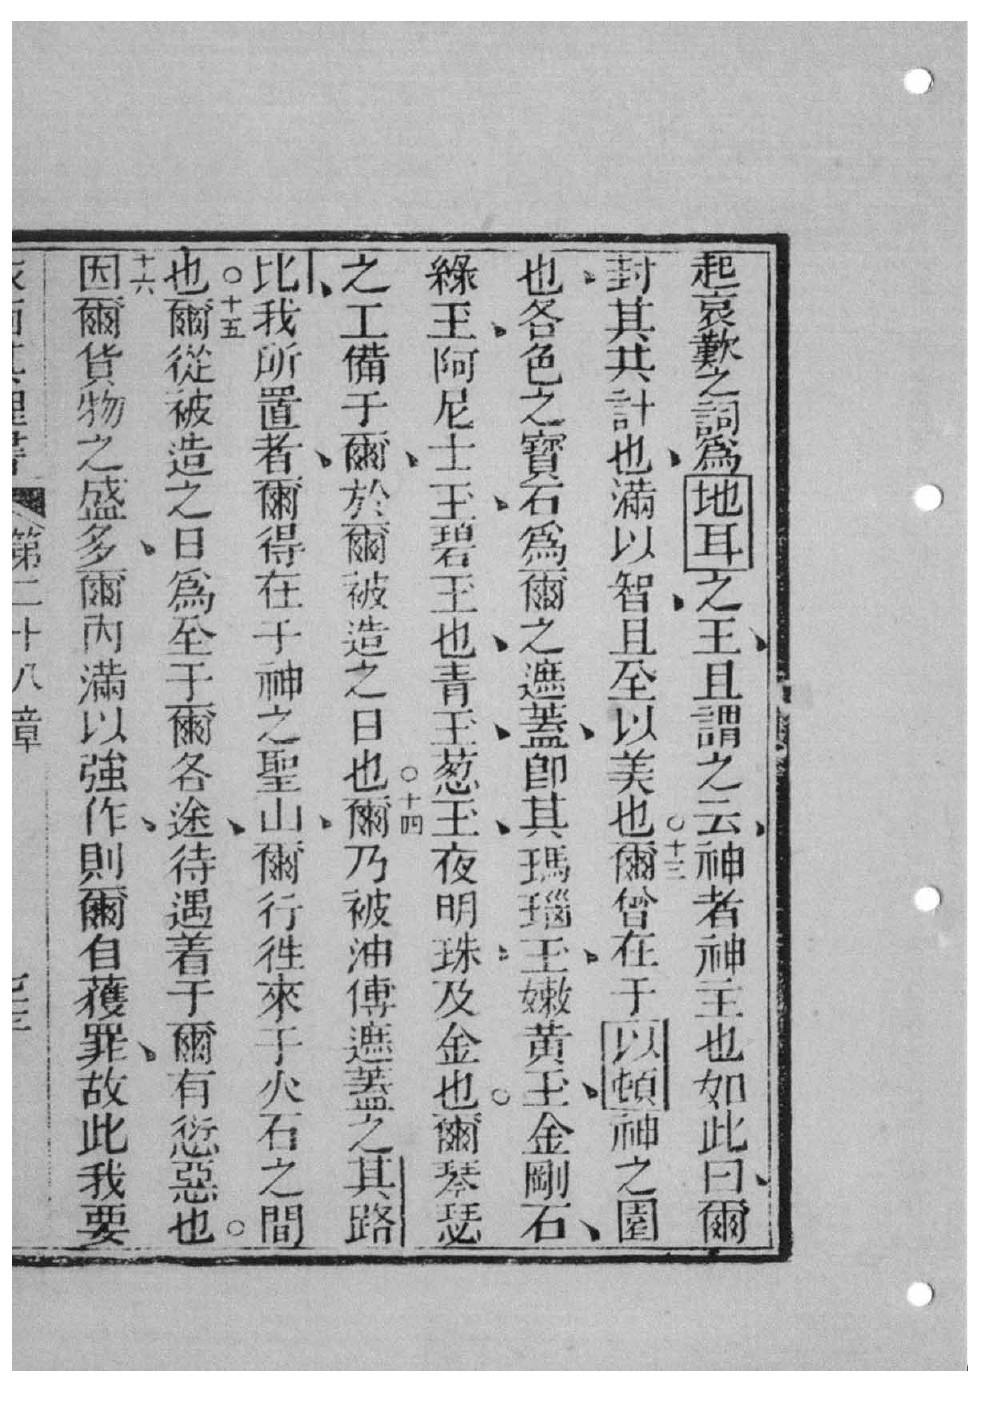 起哀歎之詞爲地耳之王且謂之云神者神主也如此曰爾
封其共計也滿以智且至以美也○十三爾曾在于以頓神之園
也各色之寶石爲爾之遮蓋卽其瑪瑙玉嫩黃玉金剛石
綠玉阿尼士玉碧玉也青玉葱玉夜明珠及金也爾琴瑟
之工備于爾於爾被造之日也○十四爾乃被油傅遮蓋之其路
比我所置者爾得在于神之聖山爾行徃來于火石之間
也○十五爾從被造之日爲至于爾各途待遇着于爾有愆惡也
十六因爾貨物之盛多爾內滿以強作則爾自獲罪故此我要
第二十八章